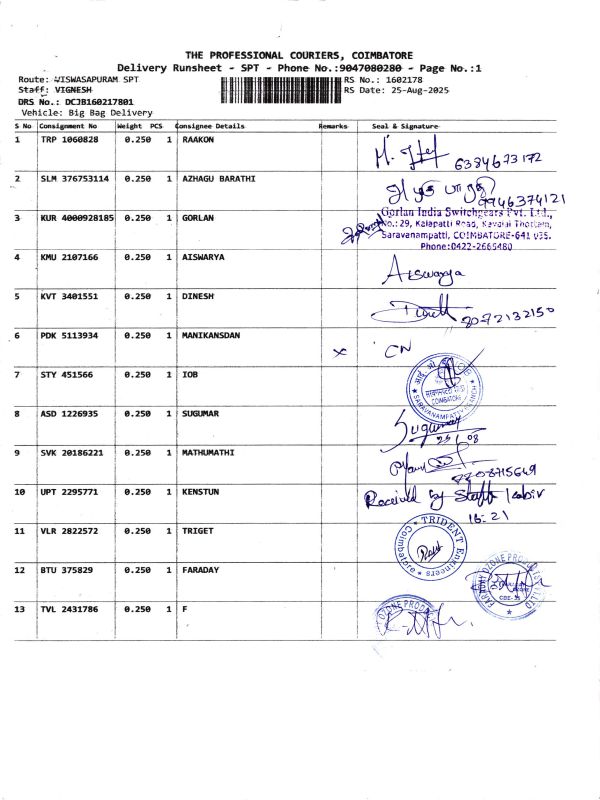 THE PROFESSIONAL COURIERS, COIMBATORE
Delivery Runsheet - SPT - Phone No.:9047080280 - Page No.:1
Route: VISWASAPURAM SPT
RS No.: 1602178
Staff: VIGNESH
RS Date: 25-Aug-2025
DRS No.: DCJB160217801
Vehicle: Big Bag Delivery
S No Consignment No Weight PCS Consignee Details Remarks Seal & Signature
1 TRP 1060828 0.250 1 RAAKON
6384673172
2 SLM 376753114 0.250 1 AZHAGU BARATHI
9946374121
3 KUR 4000928185 0.250 1 GORLAN
Gorlan India Switchgears Pvt. Ltd.,
No.: 29, Kalapatti Road,
Saravanampatti, COIMBATORE-641 035.
Phone:0422-2665480
4 KMU 2107166 0.250 1 AISWARYA Aiswarya
5 KVT 3401551 0.250 1 DINESH
8072132150
6 PDK 5113934 0.250 1 MANIKANSDAN x CN
7 STY 451566 0.250 1 IOB
COIMBATORE
8 ASD 1226935 0.250 1 SUGUMAR Sugumar
25/08
9 SVK 20186221 0.250 1 MATHUMATHI
8808715649
10 UPT 2295771 0.250 1 KENSTUN Received by Staff
16:21
11 VLR 2822572 0.250 1 TRIGET
TRIDENT Engineers
Coimbatore
12 BTU 375829 0.250 1 FARADAY
FARADAY OZONE
13 TVL 2431786 0.250 1 F
OZONE PROD